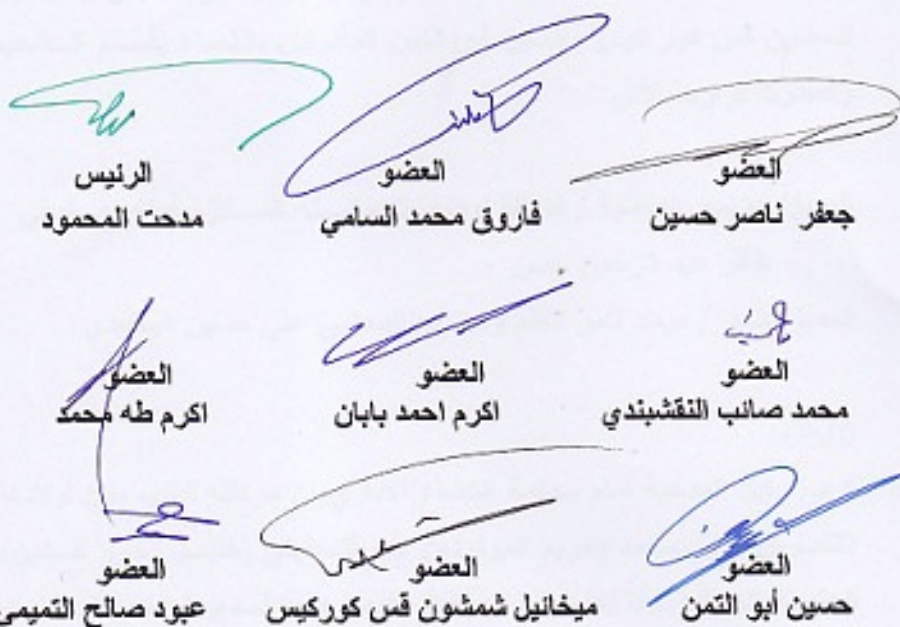 العضو
جعفر ناصر حسين
العضو
فاروق محمد السامي
الرئيس
مدحت المحمود
العضو
محمد صائب النقشبندي
العضو
اكرم احمد بابان
العضو
اكرم طه محمد
العضو
حسين أبو التمن
العضو
ميخائيل شمشون قس كوركيس
العضو
عبود صالح التميمي